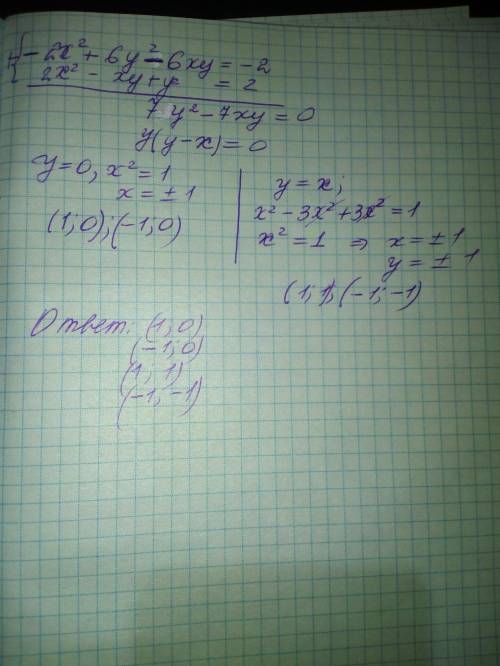 +{ -2x² + 6y² - 6xy = -2
2x² - xy + y² = 2
7y² - 7xy = 0
y(y-x) = 0
y=0, x² = 1
x = ± 1
(1; 0); (-1; 0)
y = x;
x² - 3x² + 3x² = 1
x² = 1 ⇒ x = ± 1
y = ± 1
(1; 1), (-1; -1)
Ответ: (1; 0)
(-1; 0)
(1; 1)
(-1; -1)